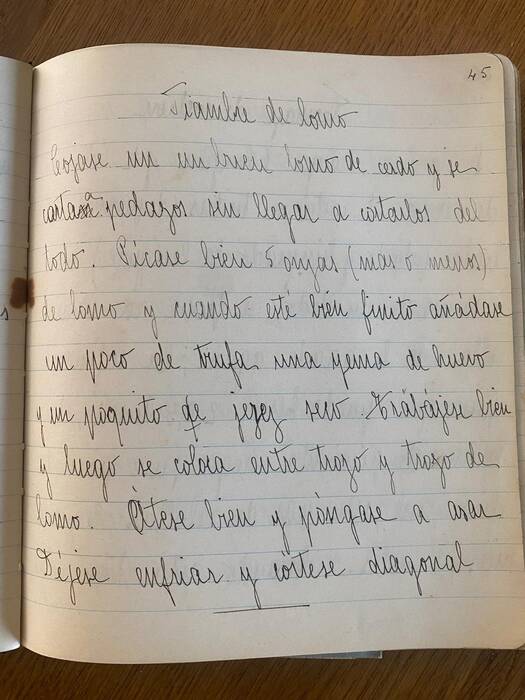 45
Fiambre de lomo
Cojase un un buen lomo de cerdo y se
cortara a pedazos sin llegar a cortarlos del
todo. Picase bien 5 onzas (mas o menos)
de lomo y cuando esté bien finito añádase
un poco de trufa una yema de huevo
y un poquito de jerez seco. Trabájese bien
y luego se coloca entre trozo y trozo de
lomo. Átese bien y póngase a asar
Déjese enfriar y córtese diagonal
s